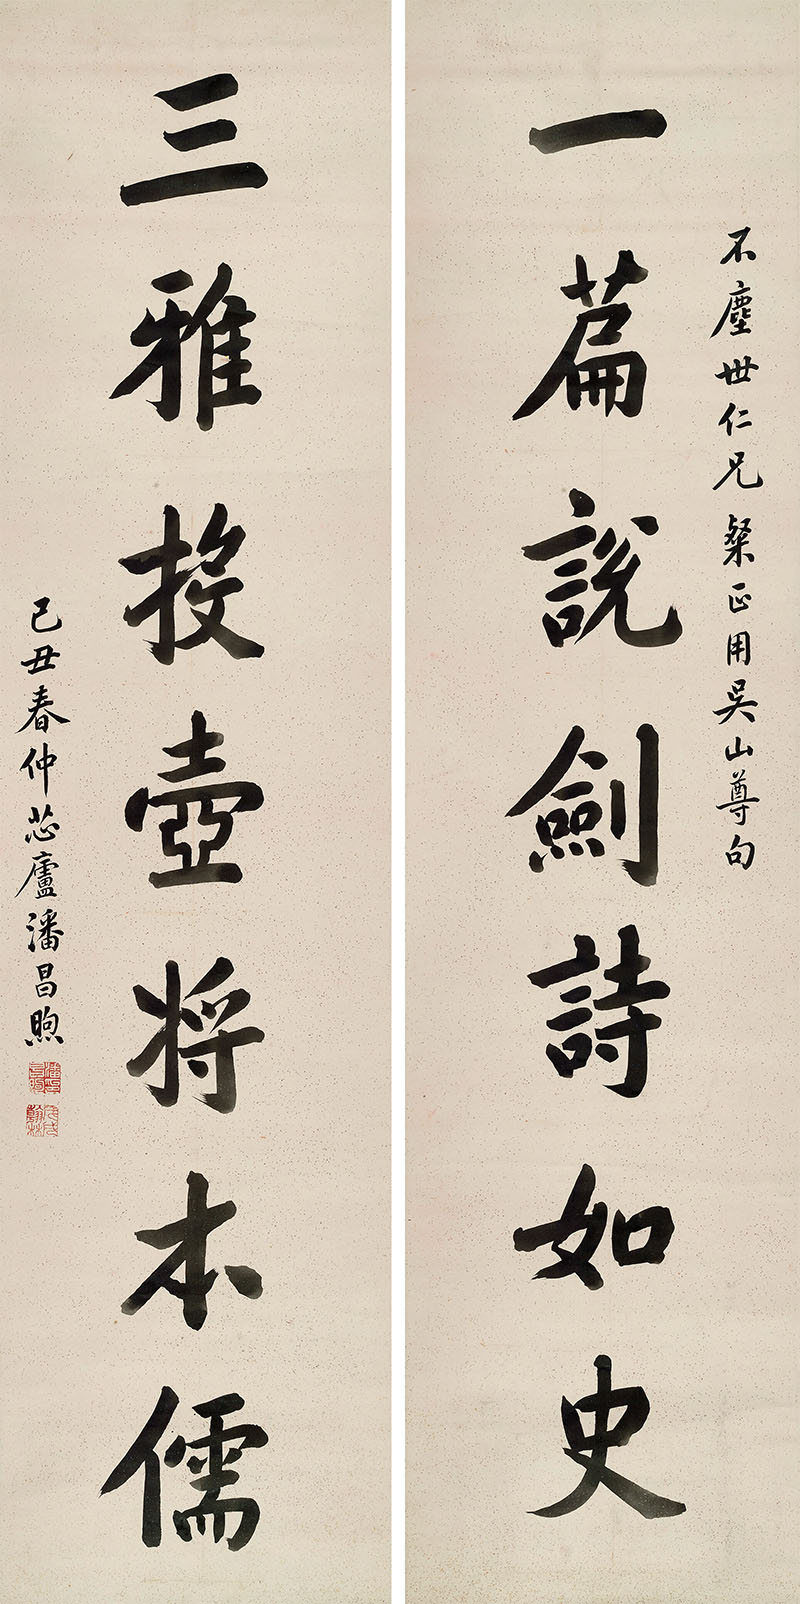 不塵世仁兄粲正用吴山尊句
一篇說劍詩如史
三雅投壺將本儒
己丑春仲芯廬潘昌煦